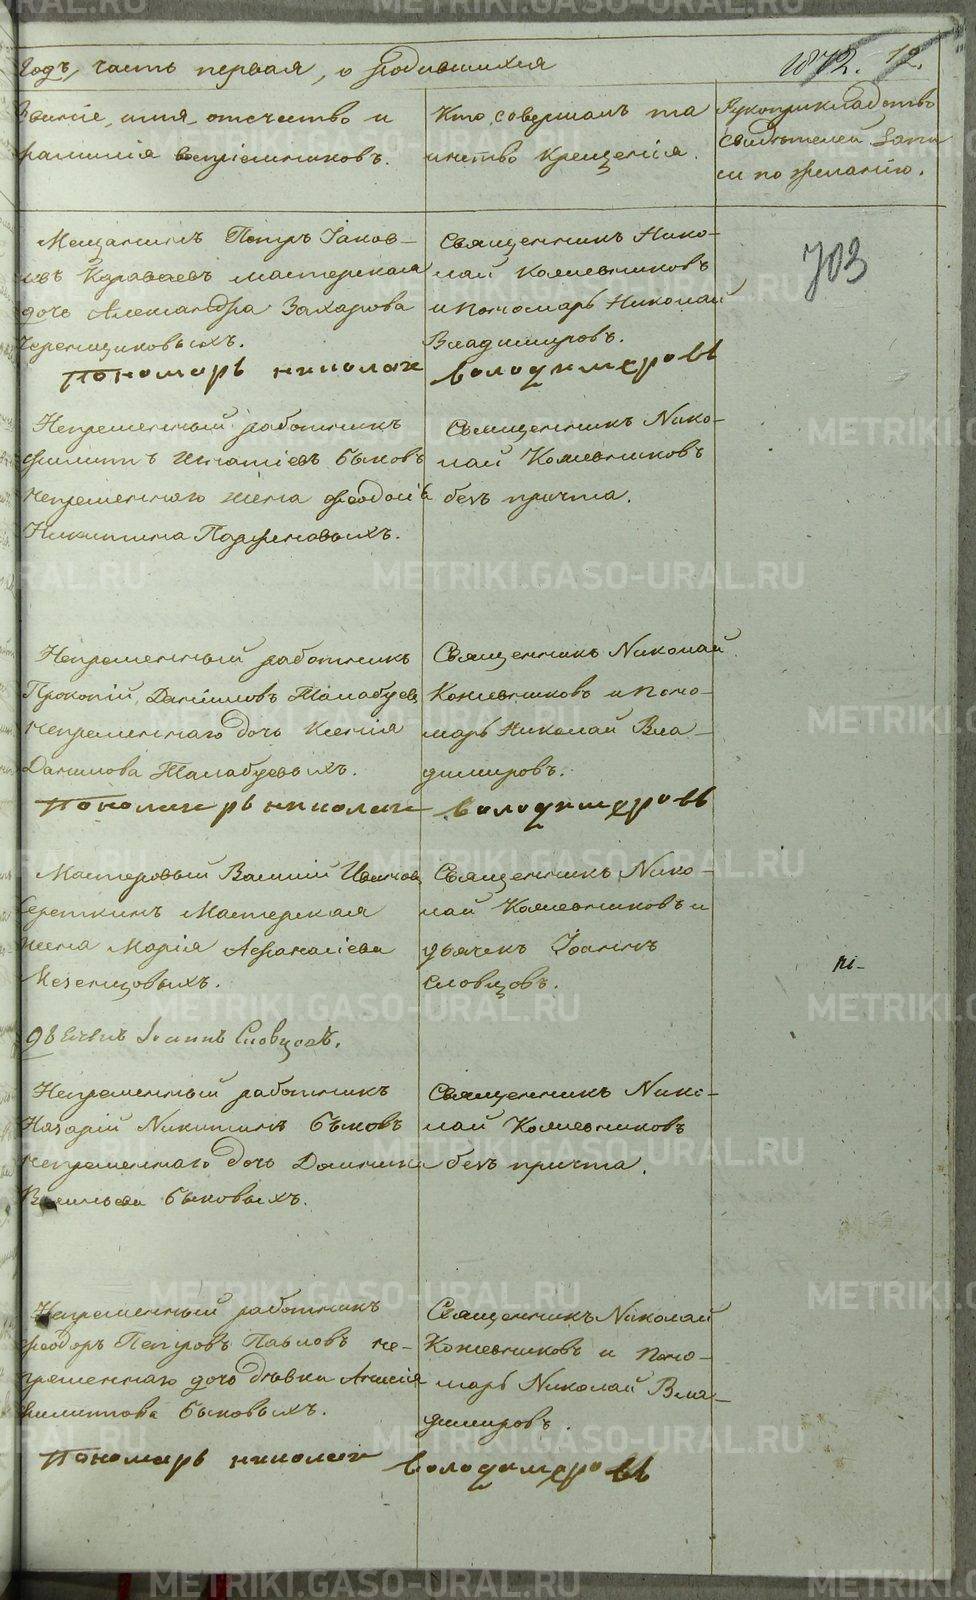 Годъ, часть первая, о родившихся
1872. 12.
Званіе, имя, отечество и
фамилія воспріемниковъ.
Кто совершалъ та
инство крещенія.
Рукоприкладство
свидѣтелей запи
си по желанію.
703
Мещанинъ Петръ Іаков-
левъ Караваевъ мастерская
дочь Александра Захарова
Черемщиковыхъ.
Священникъ Нико-
лай Кожевниковъ
и пономарь Николай
Владимировъ.
Пономарь николай володимеровъ
Непременный работникъ
Филиппъ Игнатіевъ Быковъ
непременнаго жена Феодосія
Никитина Парфеновыхъ.
Священникъ Нико-
лай Кожевниковъ
безъ причта.
Непременный работникъ
Прокопій Даниловъ Талабуевъ
непременнаго дочь Ксенія
Данилова Талабуевыхъ.
Священникъ Николай
Кожевниковъ и поно-
марь Николай Вла-
димировъ.
Пономарь николай володимеровъ
Мастеровый Василій Ивановъ
Мастерская
жена Марія Афанасіева
Мезенцовыхъ.
Священникъ Нико-
лай Кожевниковъ и
дьячекъ Іоаннъ
Словцовъ.
Дьячекъ Іоаннъ Словцовъ.
Непременный работникъ
Назарій Никитинъ Быковъ
непременнаго дочь Домника
Васильева Быковыхъ.
Священникъ Нико-
лай Кожевниковъ
безъ причта.
Непременный работникъ
Феодоръ Петровъ Павловъ не-
пременнаго дочь дѣвка Анисія
Филиппова Быковыхъ.
Священникъ Николай
Кожевниковъ и поно-
марь Николай Вла-
димировъ.
Пономарь николай володимеровъ
METRIKI.GASO-URAL.RU